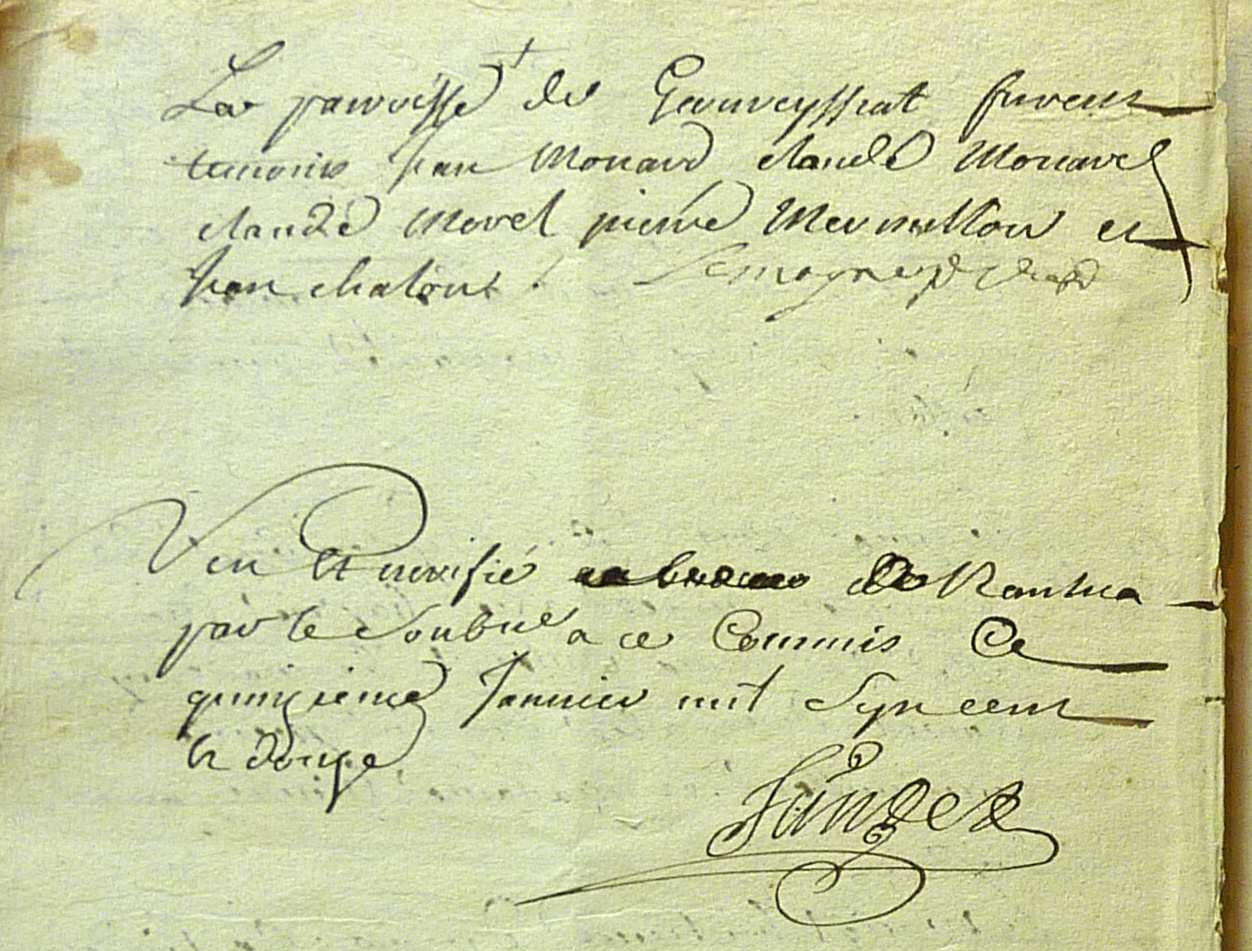 La parroisse de Geouveyssiat furent
temoins Jean Monard claude Monavel
claude Morel pierre Mermillon et
Jean chatont
Veu Et verifié au bureau de Nantua
par le Soubne a ce Commis Ce
quinzieme Janvier mil Sept cent
le douze